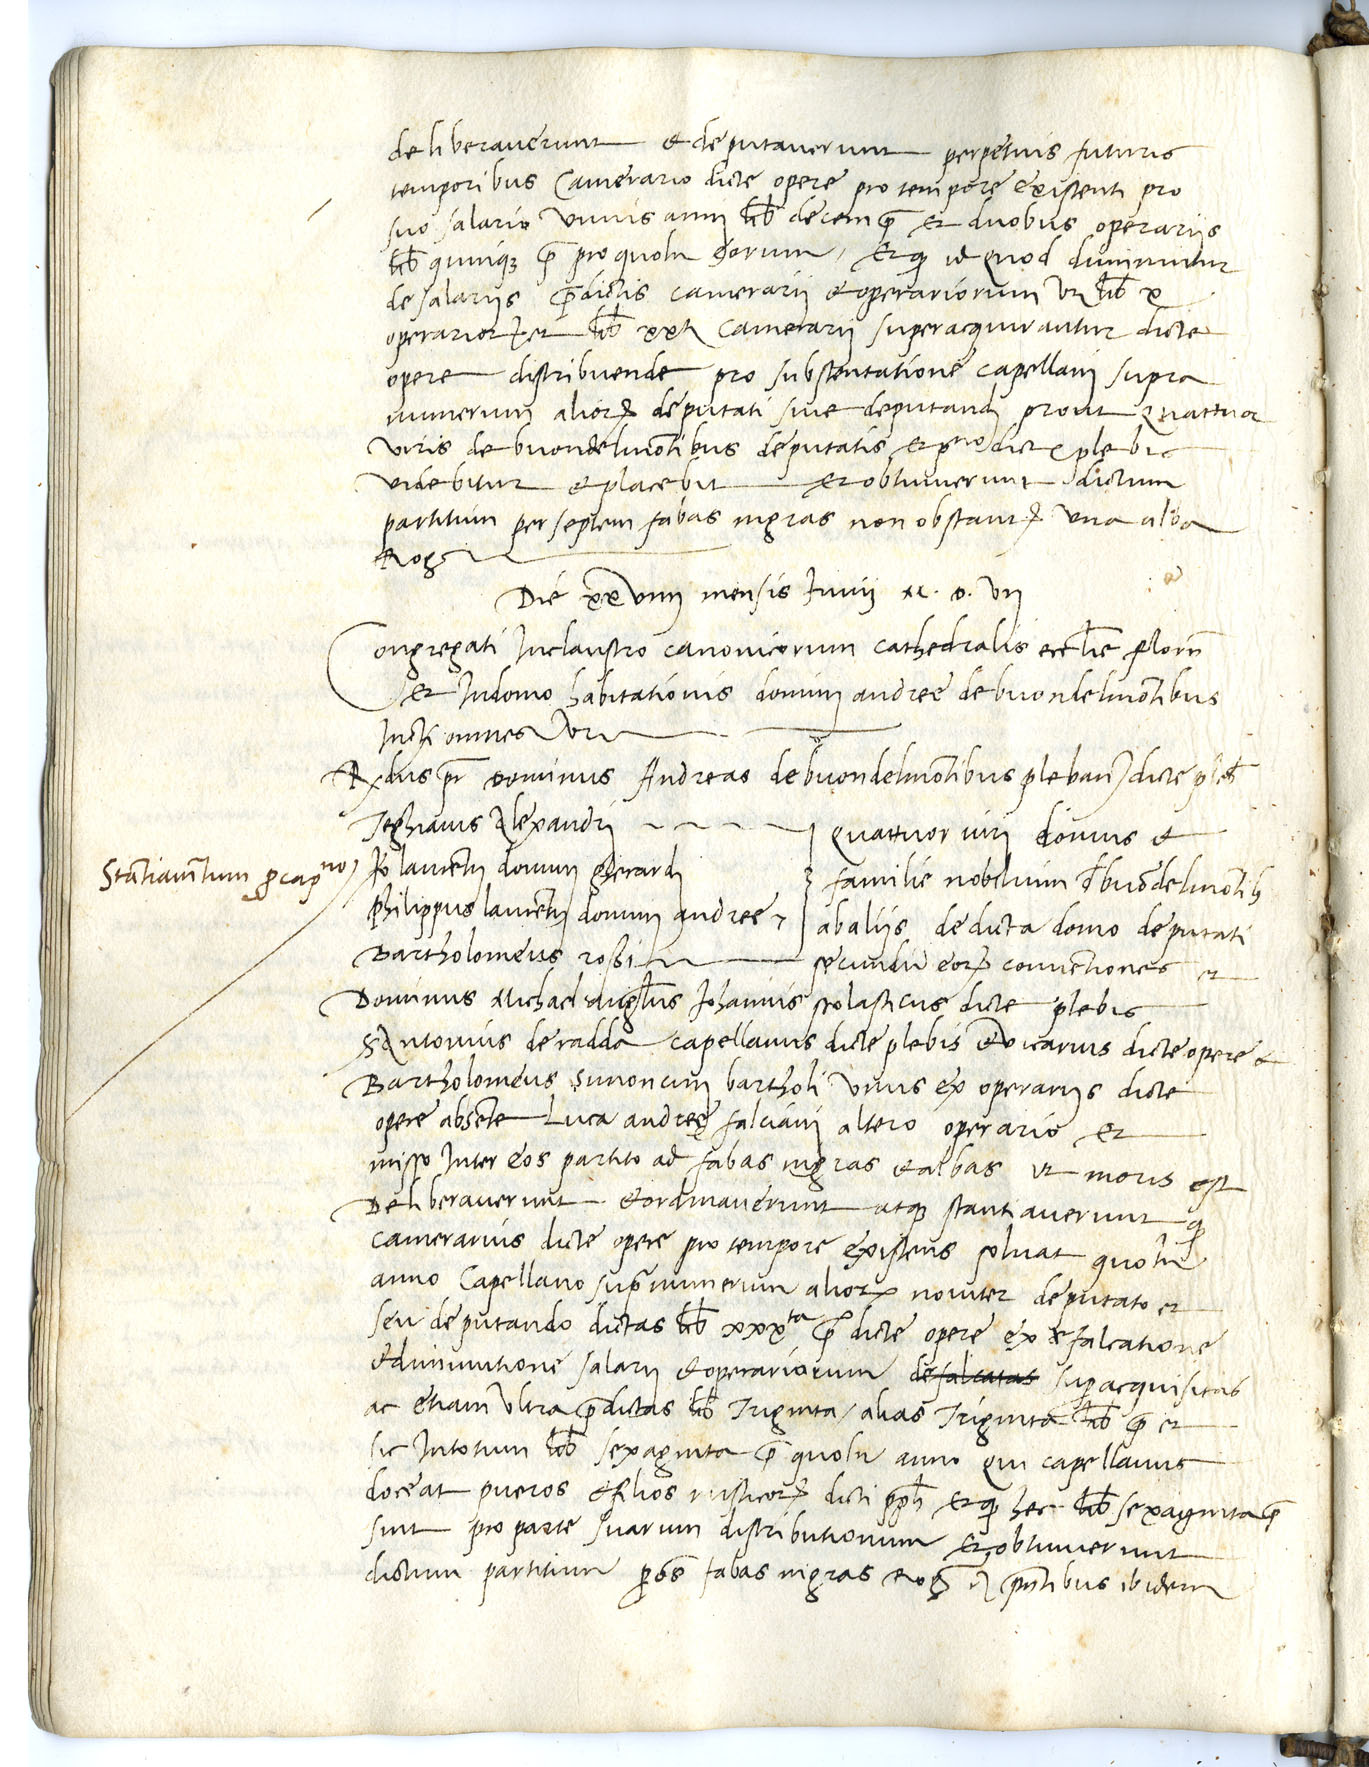 deliberaverunt et deputaverunt perpetuis futuris
temporibus Camerario dicte opere pro tempore existenti pro
suo salario unius anni lib decem p et duobus operariis
lib quinq p pro quolz eorum, Et q id quod diminuitur
de salariis pdictis camerarii et operariorum vz lib x
operarior et lib xxti Camerarii superacquirantur dicte
opere distribuende pro substentatione capellani supra
numerum alior deputati sive deputandi prout quattuor
viris de buondelmotibus deputatis et pno dicte plebis
videbitur et placebit et obtinuerunt dictum
partitum per septem fabas nigras non obstant una alba
Rog
Die xxviiii mensis Junii M. D. vii
Congregati In claustro canonicorum cathedralis ecclie flor
et In domo habitationis domini andree de buondelmotibus
Infri omnes vz
Rdus pr dominus Andreas de buondelmotibus plebanus dicte pleb
Teghiaius Alexandri
Statiamtum p capno
Jo laurentii domini gherardi
Philippus laurentii domini andree
Bartholomeus rossi
quattuor viri domus et
familie nobilium d buodelmotib
ab aliis de dicta domo deputati
secundu eor conventiones et
Dominus Michael Johannis scolasticus dicte plebis
S Antonius de radda capellanus dicte plebis et vicarius dicte opere et
Bartholomeus simoncini bartholi unus ex operariis dicte
opere absente Luca andree falciani altero operario et
misso Inter eos partito ad fabas nigras et albas ut moris est
Deliberaverunt et ordinaverunt atq stantiaverunt q
camerarius dicte opere pro tempore existens solvat quolz
anno Capellano supra numerum alior noviter deputato et
seu deputando dictas lib xxxta p dicte opere ex defalcatione
et diminutione salarii et operariorum defalcatas supacquisitas
ac etiam ultra pdictas lib Triginta / alias Triginta lib p et
sic In totum lib sexaginta p quolz anno qui capellanus
doceat pueros et filios rusticor dicti ppli Et q hec lib sexaginta p
sint pro parte suarum distributionum Et obtinuerunt
dictum partitum p fabas nigras Rog pntibus ibidem